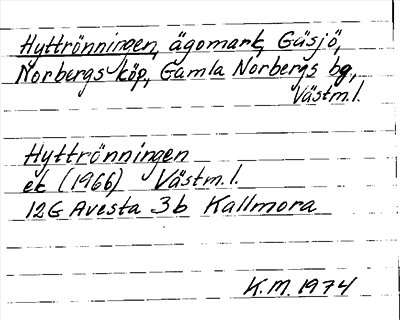 Hyttrönningen, ägomark, Gäsjö,
Norbergs köp, Gamla Norbergs bg,
Västm.l.
Hyttrönningen
ek (1966) Västm.l.
12G Avesta 3b Kallmora
K.M. 1974